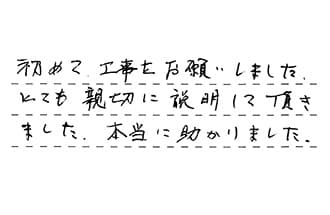 初めて、工事をお願いしました。
とても親切に説明して頂き
ました。本当に助かりました。